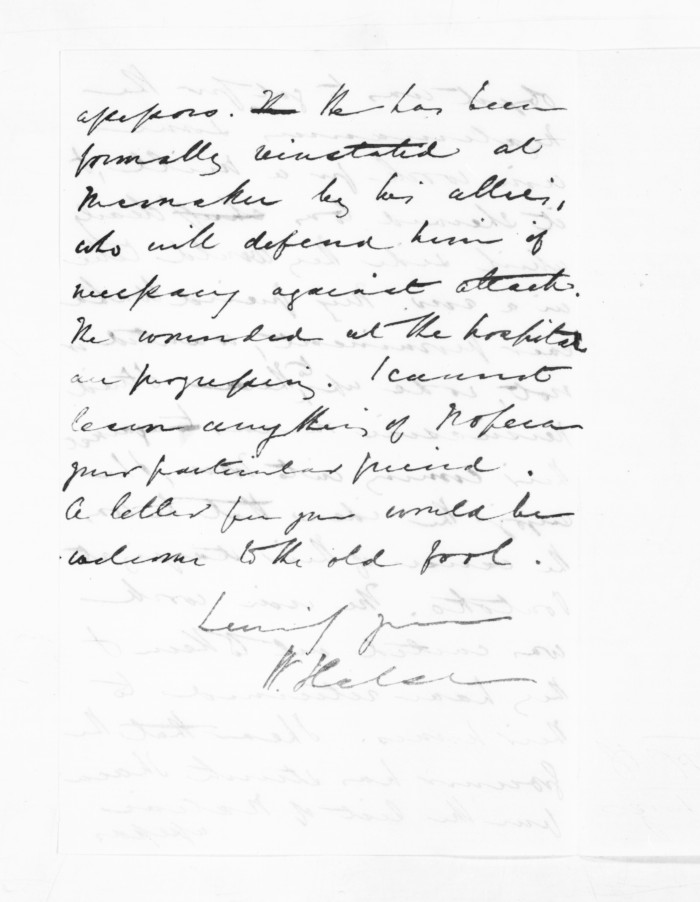 assessors. The He has been
formally reinstated at
by his allies,
who will defend him if
necessary against attack.
The wounded at the hospital
are progressing. I cannot
learn anything of
your particular friend.
A letter from you would be
welcome to the old fool.
yours
W.